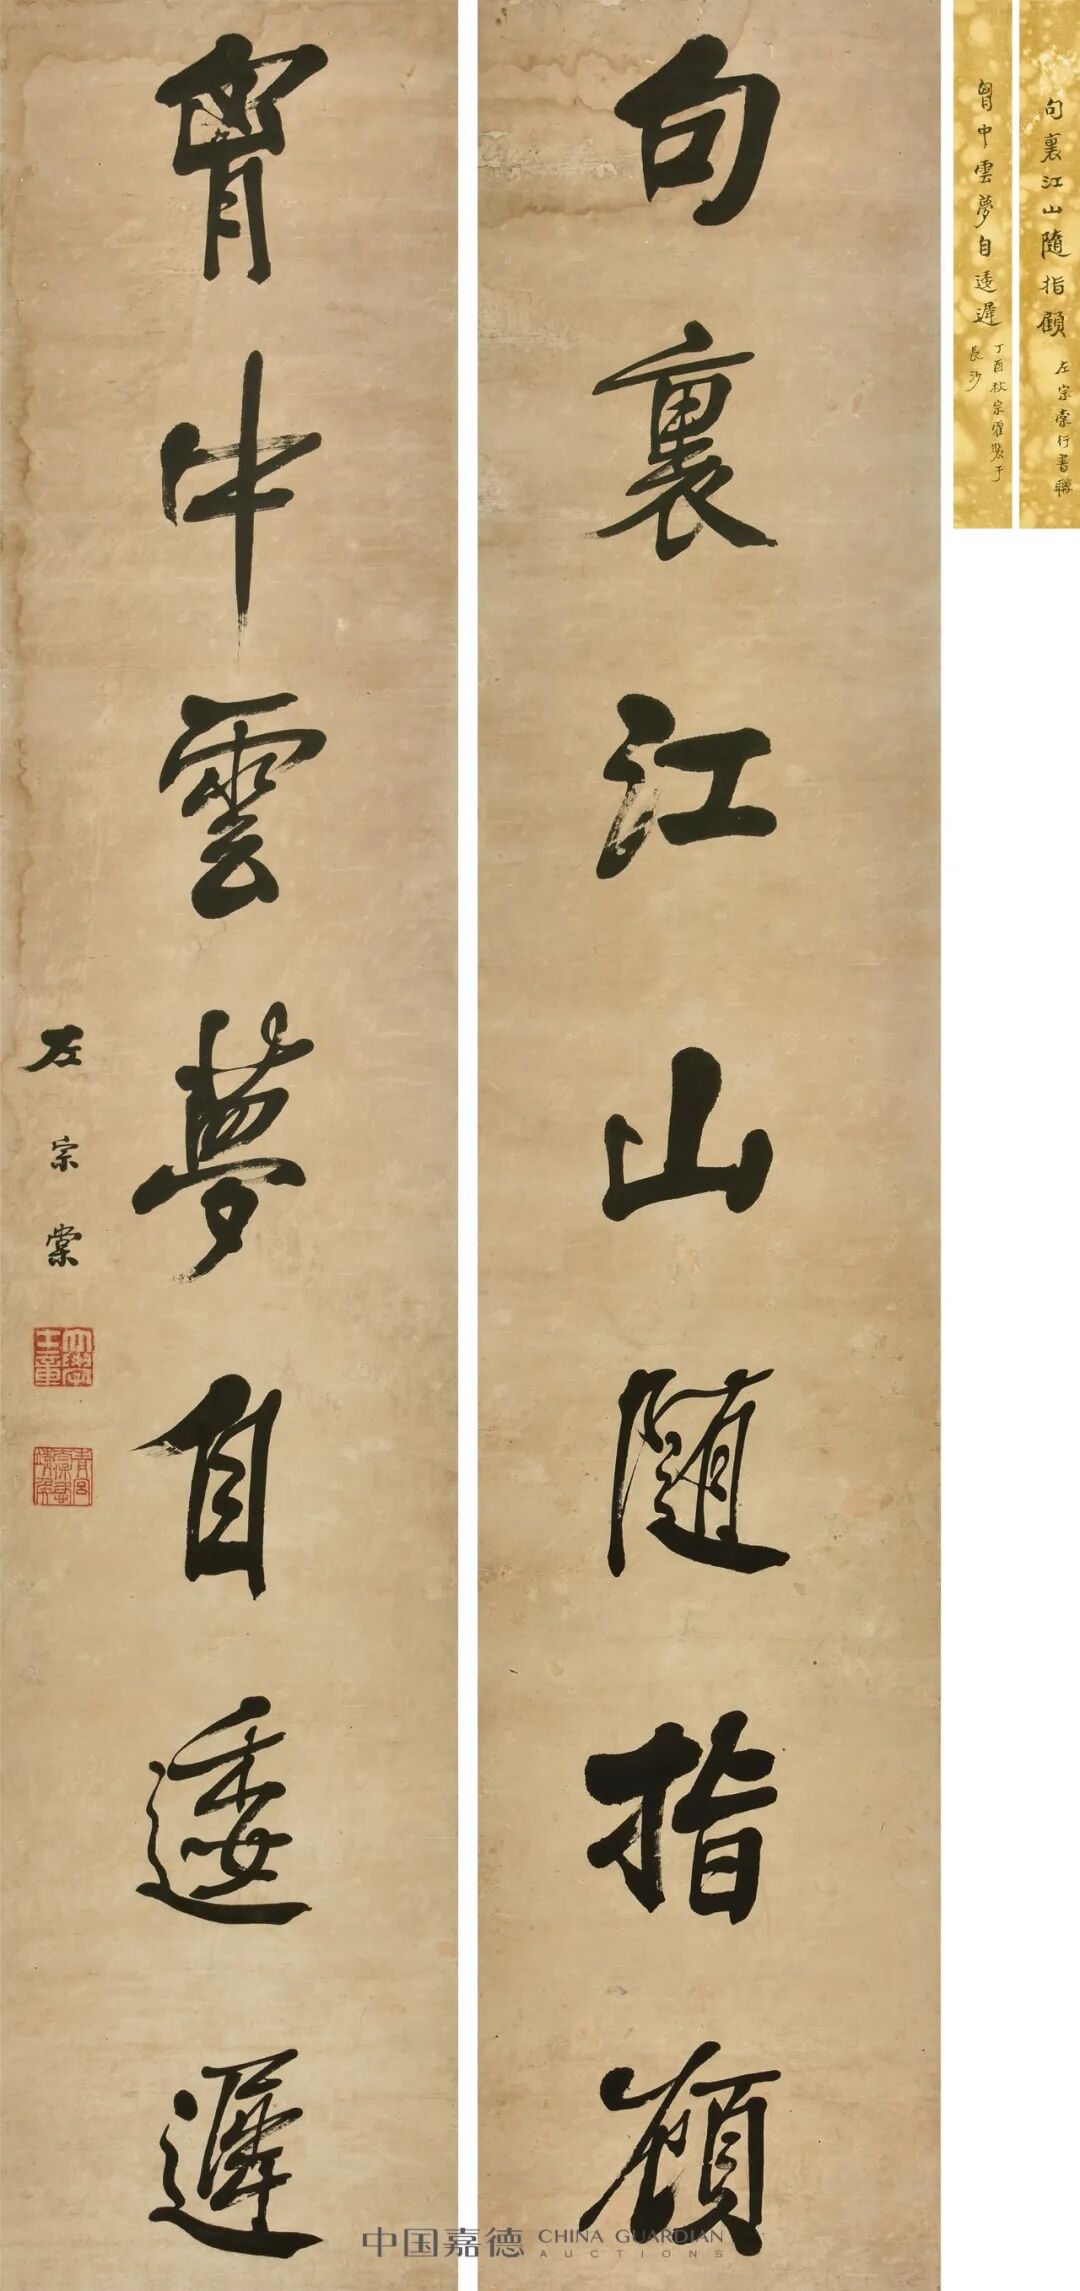 句裏江山隨指顧
左宗棠行書聯
胷中雲夢自逶遲
丁酉秋宗霍裝于
長沙
句裏江山隨指顧
胷中雲夢自逶遲
左宗棠
中国嘉德 CHINA GUARDIAN
AUCTIONS